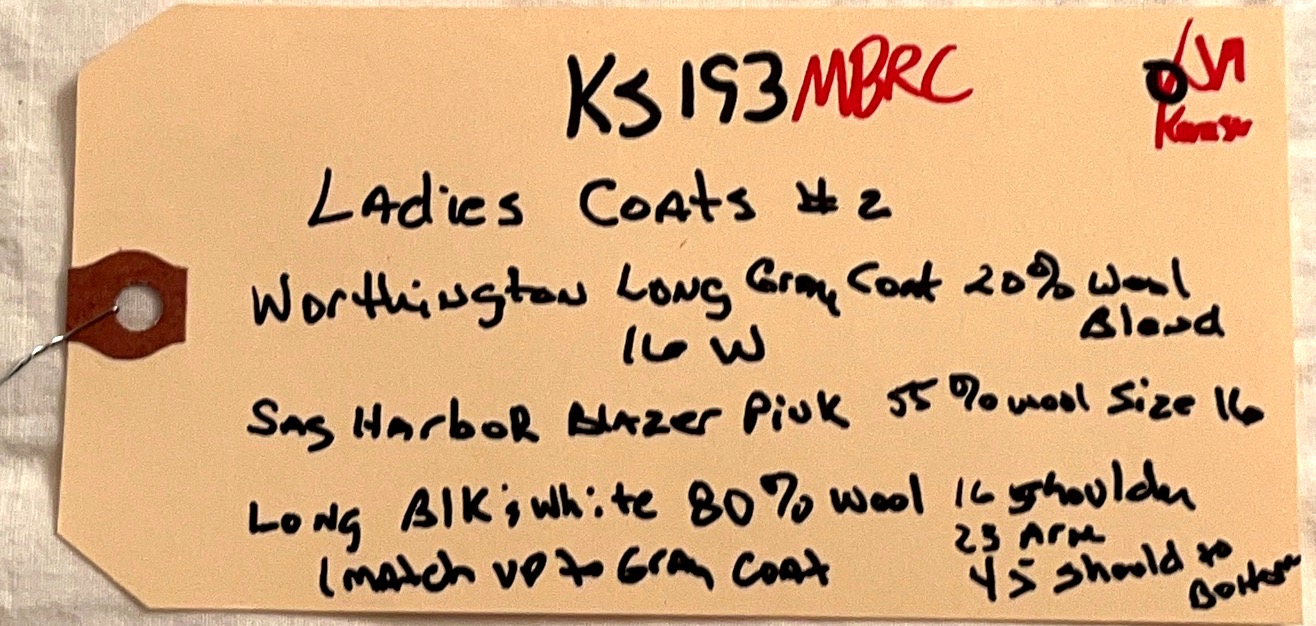 KS193 MBRC
Ladies Coats #2
Worthington Long Gray Coat 20% Wool
Blend
16 W
Sag Harbor Blazer Pink 55% wool Size 16
Long Blk & White 80% Wool 16 shoulder
23 Arm
(match up to Gray Coat 45 should to
Bottom